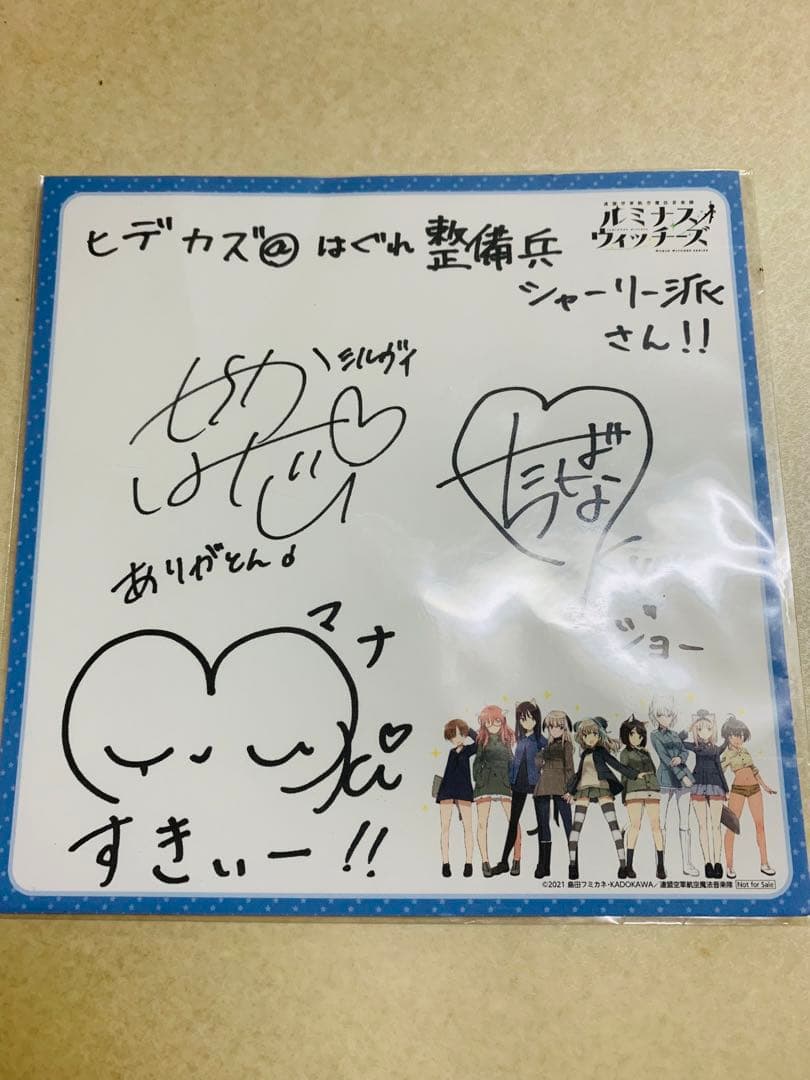 連盟空軍航空魔法音楽隊
ルミナス
ウィッチーズ
ヒデカズ@はぐれ整備兵
シャーリー派
さん!!
シルヴィ
ありがとん♪
ジョー
マナ
すきぃー!!
©2021 島田フミカネ・KADOKAWA/連盟空軍航空魔法音楽隊 Not for Sale